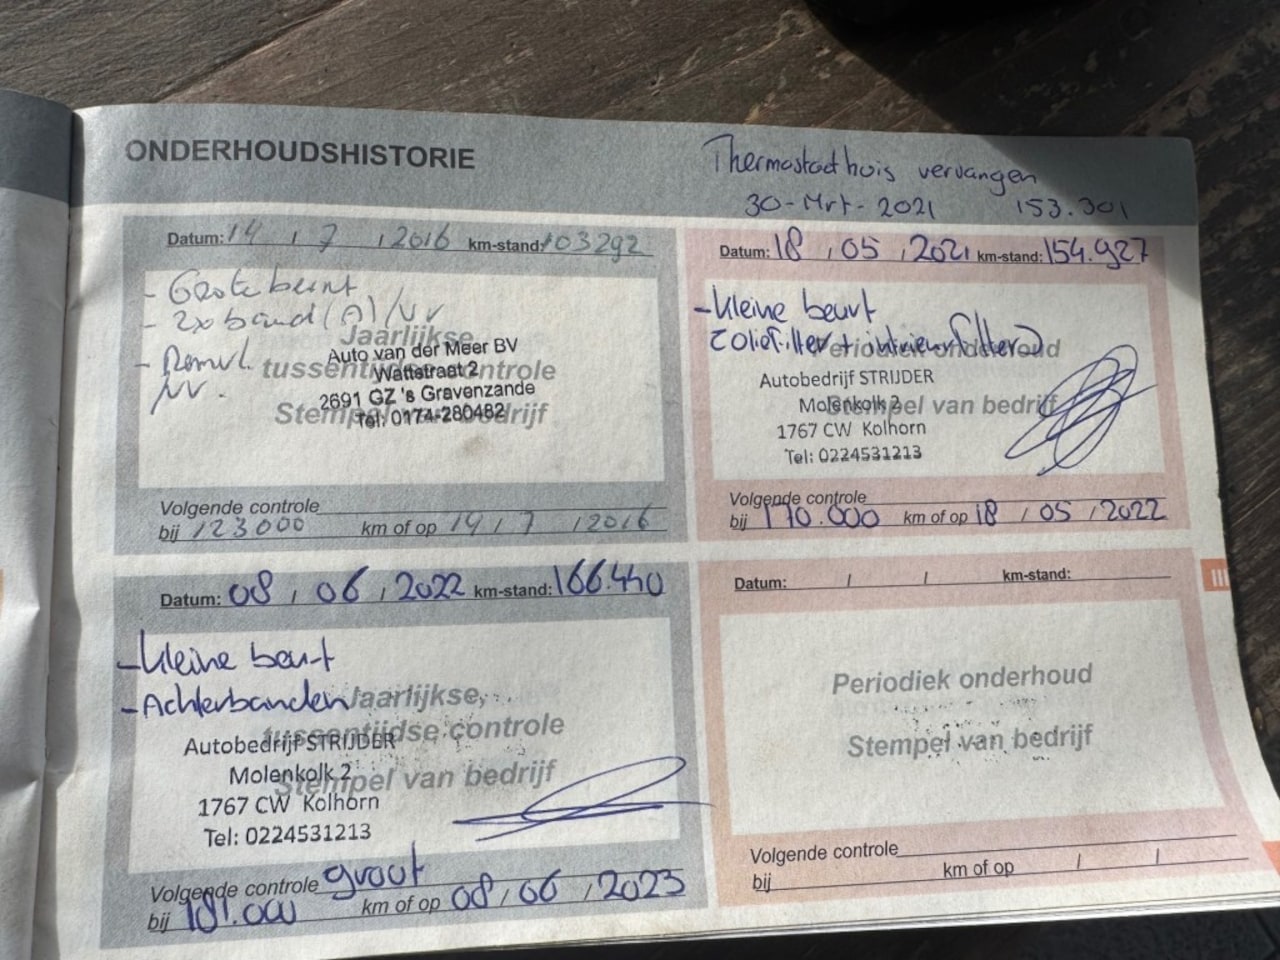 ONDERHOUDSHISTORIE
Thermostadhuis vervangen
30-Mrt-2021 153.301
Datum: 14 / 7 / 2016 km-stand: 103292
- Grote beurt
- 2x band (A)/VV
- Remvl.
VV.
Jaarlijkse
tussentijdse controle
Stempel van bedrijf
Auto van der Meer BV
Wattstraat 2
2691 GZ 's Gravenzande
Tel: 0174-280482
Volgende controle
bij 123000 km of op 14 / 7 / 2016
Datum: 18 / 05 / 2021 km-stand: 154.927
- Kleine beurt
(oliefilter + intrieurfilter)
Periodiek onderhoud
Stempel van bedrijf
Autobedrijf STRIJDER
Molenkolk 2
1767 CW Kolhorn
Tel: 0224531213
Volgende controle
bij 170.000 km of op 18 / 05 / 2022
Datum: 08 / 06 / 2022 km-stand: 166.440
- Kleine beurt
- Achterbanden
Jaarlijkse,
tussentijdse controle
Stempel van bedrijf
Autobedrijf STRIJDER
Molenkolk 2
1767 CW Kolhorn
Tel: 0224531213
Volgende controle groot
bij 181.000 km of op 08 / 06 / 2023
Datum: / / km-stand:
Periodiek onderhoud
Stempel van bedrijf
Volgende controle
bij km of op / /